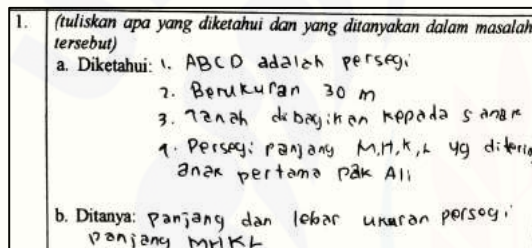 1. (tuliskan apa yang diketahui dan yang ditanyakan dalam masalah
tersebut)
a. Diketahui: 1. ABCD adalah persegi
2. Berukuran 30 m
3. Tanah dibagikan kepada 5 anak
4. Persegi panjang M,H,K,L yg diterim
anak pertama pak Ali
b. Ditanya: Panjang dan lebar ukuran persegi
panjang MHKL